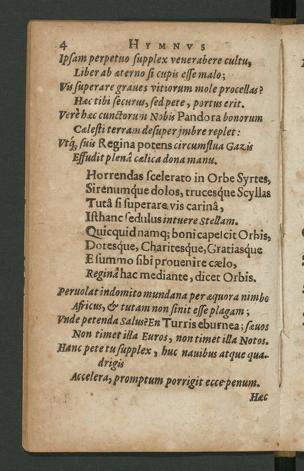 4 HYMNVS
Ipsam perpetuo supplex venerabere cultu,
Liber ab æterno si cupis esse malo;
Vis superare graues vitiorum mole procellas?
Hac tibi securus, sed pete, portus erit.
Verè hac cunctorum Nobis Pandora bonorum
Cælesti terram desuper jmbre replet:
Vtq́, suis Regina potens circumflua Gazis
Effudit plenâ cælica dona manu.
Horrendas scelerato in Orbe Syrtes,
Sirenumque dolos, trucesque Scyllas
Tutâ si superare vis carinâ,
Isthanc sedulus intuere Stellam.
Quicquid namq; boni capescit Orbis,
Dotesque, Charitesque, Gratiasque
E summo sibi prouenire cælo,
Reginâ hac mediante, dicet Orbis.
Peruolat indomito mundana per æquora nimbo
Africus, & tutam non sinit esse plagam;
Vnde petenda Salus? En Turris eburnea; sæuos
Non timet illa Euros, non timet illa Notos.
Hanc pete tu supplex, huc nauibus atque qua-
drigis
Accelera, promptum porrigit ecce penum.
Hæc